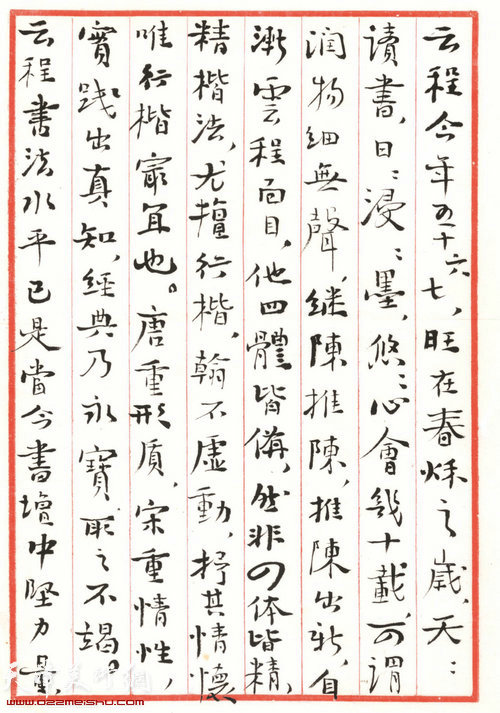 云程今年五十六七，旺在春秋之歲，天ﾞ
讀書，日ﾞ浸ﾞ墨，悠ﾞ心會幾十載，可謂
润物细無聲，继陳推陳，推陳出新，自
漸雲程面目，他四體皆備，然非四体皆精，
精楷法，尤擅行楷，翰不虚動，抒其情懷
唯行楷最宜也。唐重形質，宋重情性，
實践出真知，經典乃永寶取之不竭。
云程書法水平已是當今書壇中堅力量，
www.022meishu.com